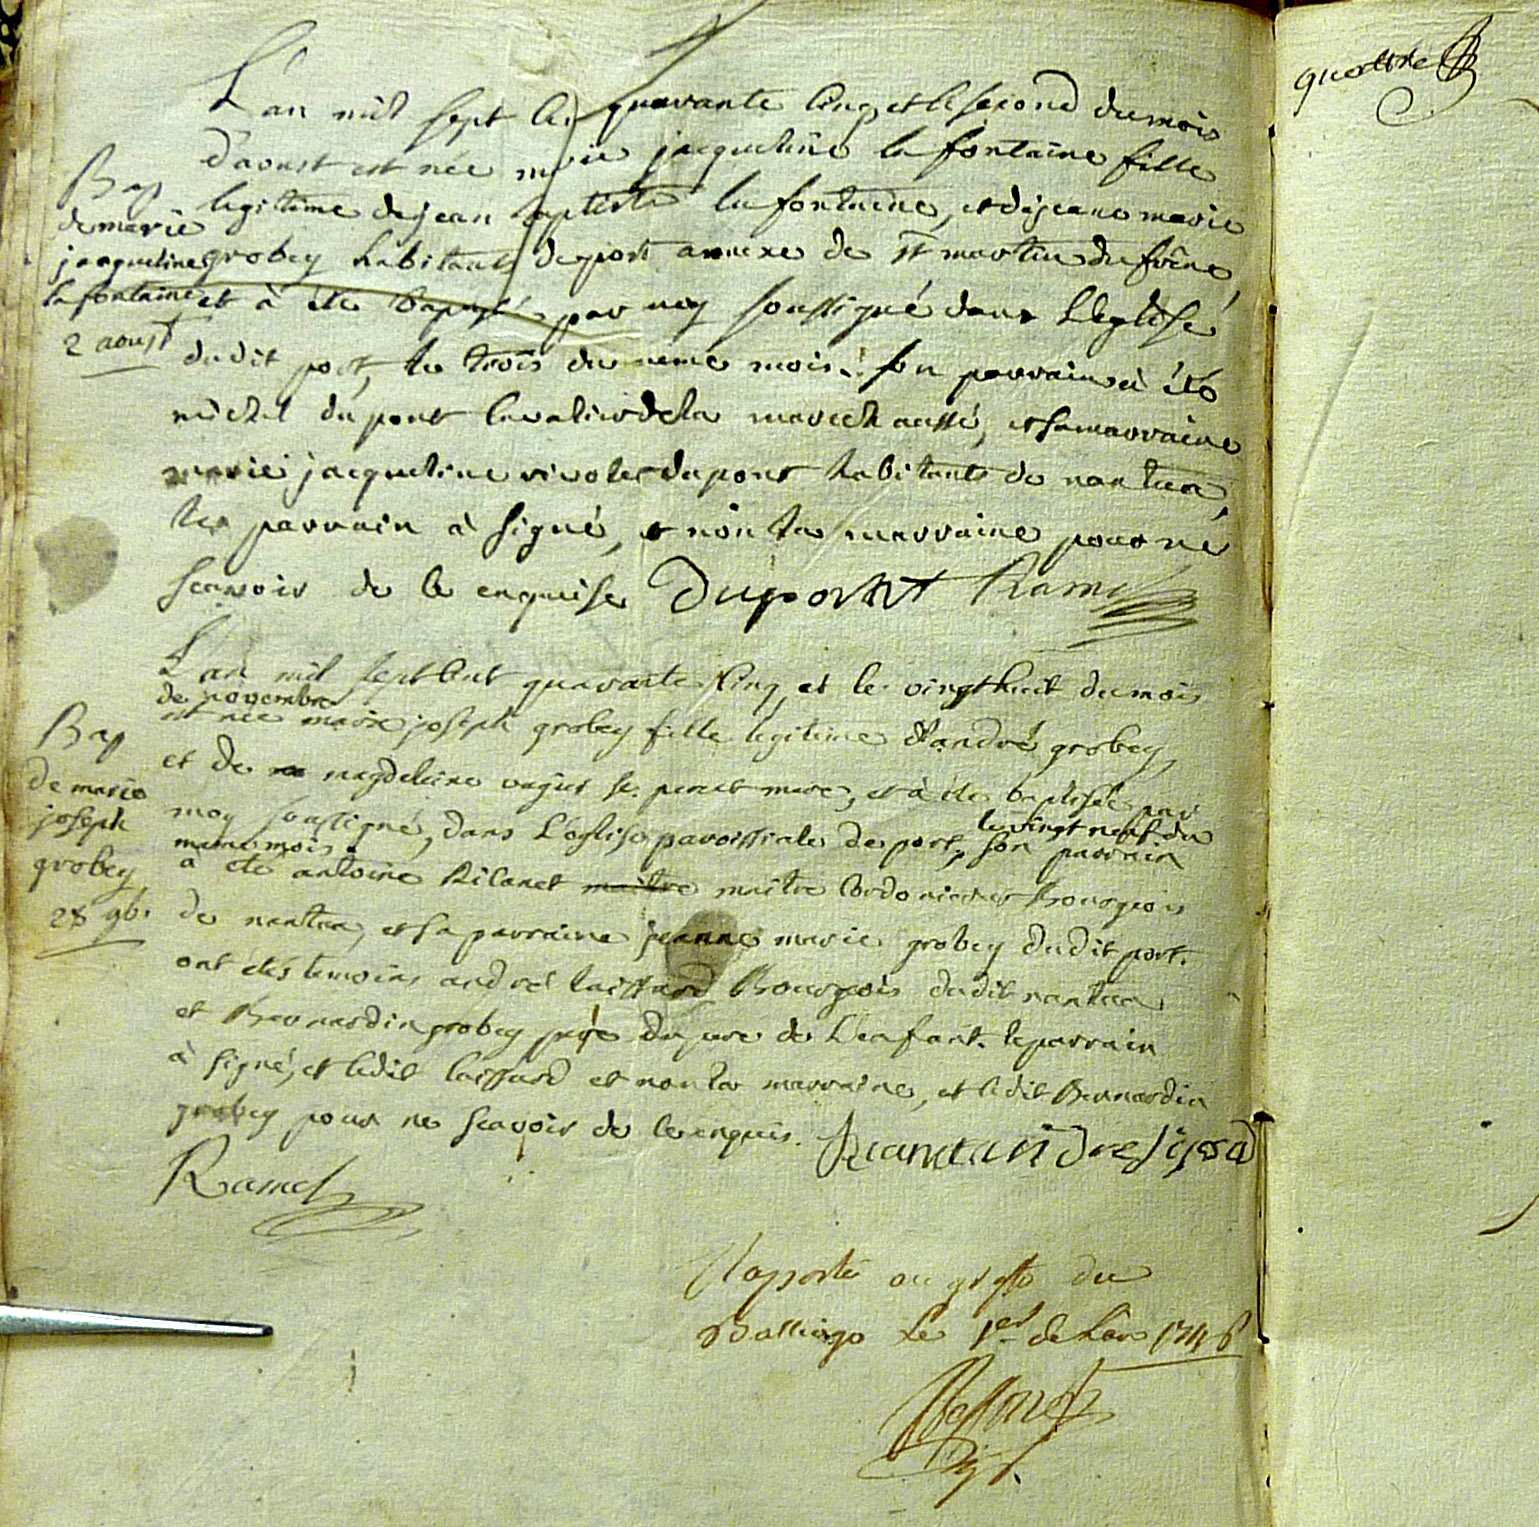 quattre
L'an mil sept cent quarante cinq et le second du mois
d'aoust est née marie jacqueline la fontaine fille
legitime de jean baptiste la fontaine, et de jeane marie
grobey habitants de port annexe de st martin du frêne,
et à été baptisé par moy soussigné dans L'eglise
dudit port, le trois du meme mois. son parrain à été
michel dupont cavalier de la marechaussé, et sa marraine
marie jacqueline dupont habitants de nantua,
le parrain à signé, et non la marraine pour ne
scavoir de ce enquise Dupont Ramel
Bap
de marie
jacqueline
la fontaine
2 aoust
L'an mil sept cent quarante cinq, et le vingt huit du mois
de novembre
est née marie joseph grobey fille legitime d'andré grobey,
et de magdeleine ses pere et mere, et à été baptisée par
moy soussigné, dans L'eglise paroissiale de port, le vingt neuf du
meme mois. son parrain
a été antoine maitre maitre cordonier et Bourgeois
de nantua, et sa marraine jeanne marie grobey dudit port.
ont étés temoins andré Bourgeois dudit nantua
et Bernardin grobey pere du pere de L'enfant. le parrain
à signé, et ledit et non la marraine, et ledit Bernardin
grobey pour ne scavoir de ce enquis.
Ramel
Bap
de marie
joseph
grobey
28 9b.
Raporté au greffe du
Balliage Le 1er de 1746